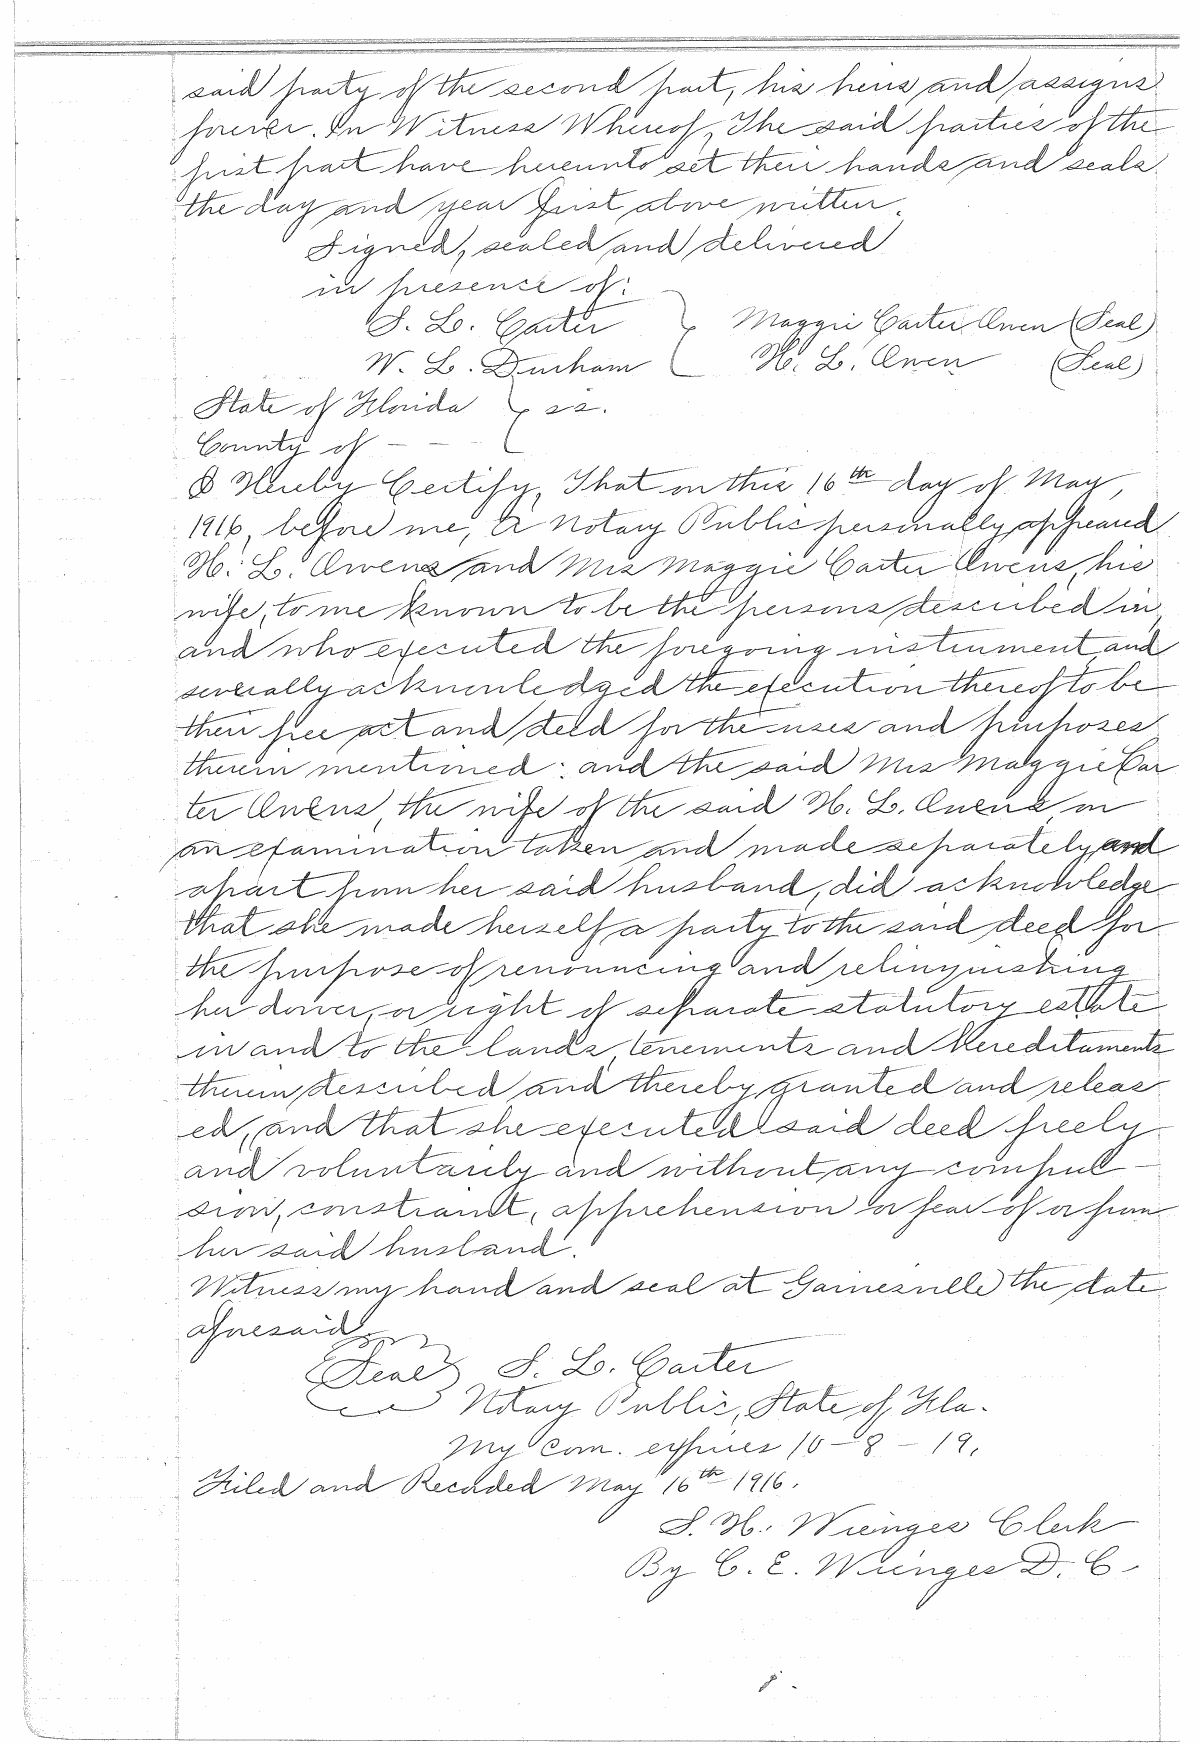 said party of the second part, his heirs and assigns
forever. In Witness Whereof, The said parties of the
first part have hereunto set their hands and seals
the day and year first above written.
Signed, sealed and delivered
in presence of:
S. L. Carter } Maggie Carter Owen (Seal)
W. L. Durham H. L. Owen (Seal)
State of Florida } ss.
County of - - -
I Hereby Certify, That on this 16th day of May,
1916, before me, a Notary Public personally appeared
H. L. Owens and Mrs Maggie Carter Owens, his
wife, to me known to be the persons described in,
and who executed the foregoing instrument and
severally acknowledged the execution thereof to be
their free act and deed for the uses and purposes
therein mentioned: and the said Mrs Maggie Car
ter Owens, the wife of the said H. L. Owens, on
an examination taken and made separately and
apart from her said husband, did acknowledge
that she made herself a party to the said deed for
the purpose of renouncing and relinquishing
her dower, or right of separate statutory estate
in and to the lands, tenements and hereditaments
therein described and thereby granted and releas
ed, and that she executed said deed freely
and voluntarily and without any compul-
sion, constraint, apprehension or fear of or from
her said husband.
Witness my hand and seal at Gainesville the date
aforesaid.
(Seal) S. L. Carter
Notary Public, State of Fla.
My com. expires 10-8-19.
Filed and Recorded May 16th 1916.
S. H. Wienges Clerk
By C. E. Wienges D. C.